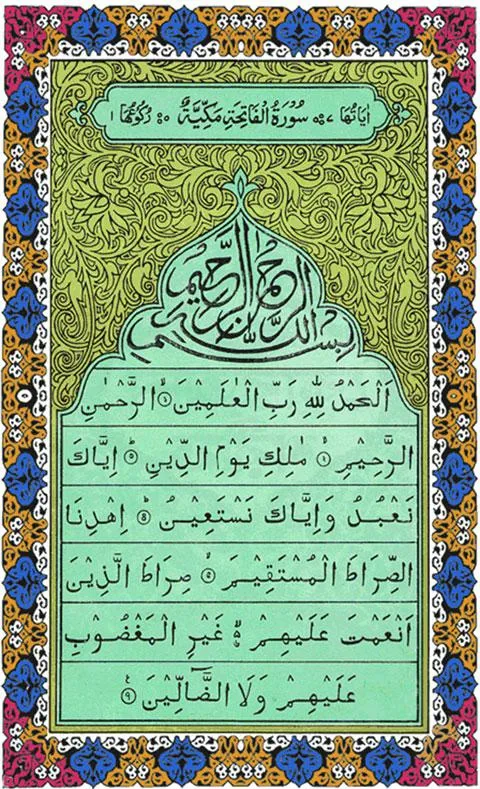 اٰيَاتُهَا ٧ سُوْرَةُ الْفَاتِحَةِ مَكِّيَّةٌ رُكُوْعُهَا ١
بِسْمِ اللّٰهِ الرَّحْمٰنِ الرَّحِيْمِ
اَلْحَمْدُ لِلّٰهِ رَبِّ الْعٰلَمِيْنَ ۙ الرَّحْمٰنِ
الرَّحِيْمِ ۙ مٰلِكِ يَوْمِ الدِّيْنِ ؕ اِيَّاكَ
نَعْبُدُ وَاِيَّاكَ نَسْتَعِيْنُ ؕ اِهْدِنَا
الصِّرَاطَ الْمُسْتَقِيْمَ ۙ صِرَاطَ الَّذِيْنَ
اَنْعَمْتَ عَلَيْهِمْ ۙ غَيْرِ الْمَغْضُوْبِ
عَلَيْهِمْ وَلَا الضَّآلِّيْنَ